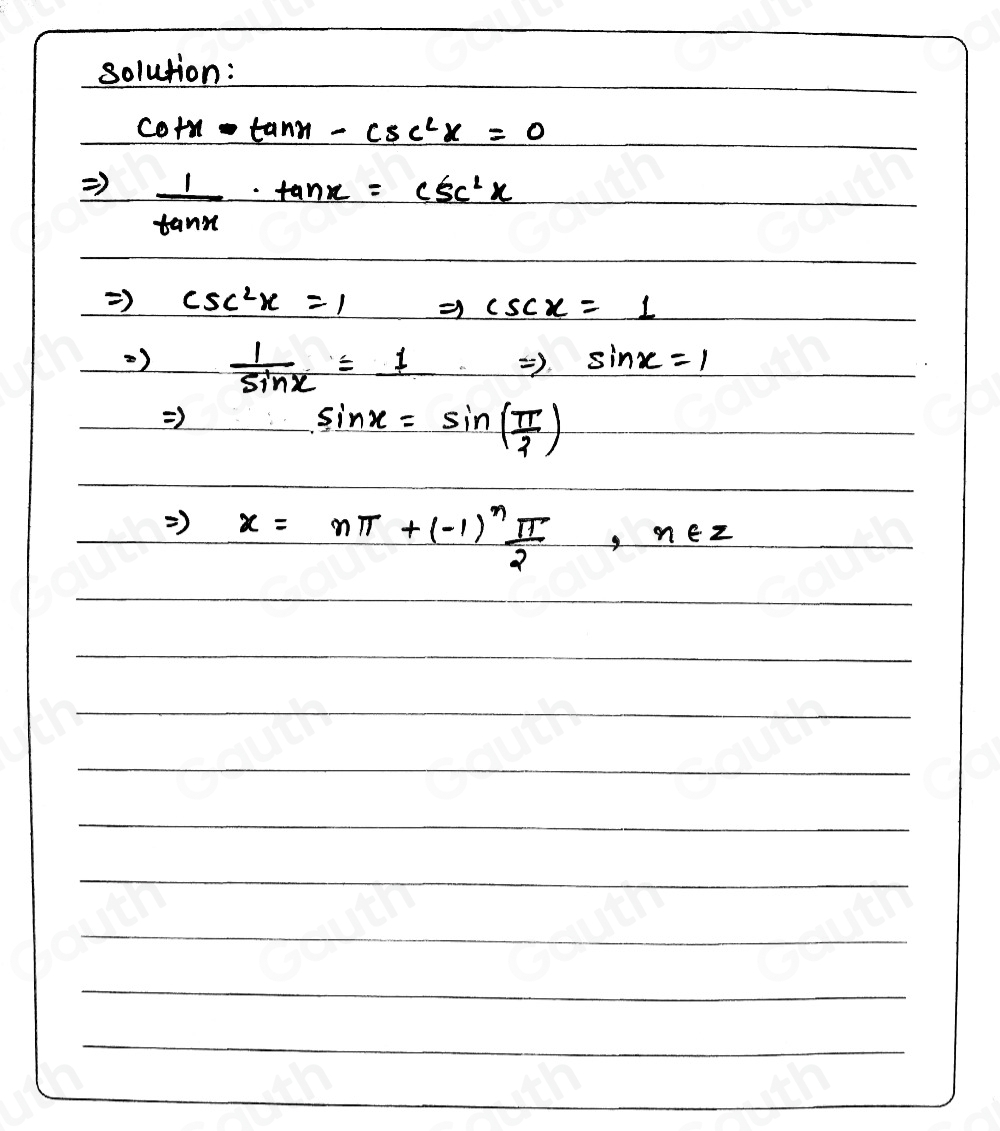 Solution:
cotx • tanx - csc²x = 0
⇒ 1/tanx · tanx = csc²x
⇒ csc²x = 1 ⇒ cscx = 1
⇒ 1/sinx = 1 ⇒ sinx = 1
⇒ sinx = sin(π/2)
⇒ x = nπ + (-1)ⁿ π/2 , n ∈ z
Gauth